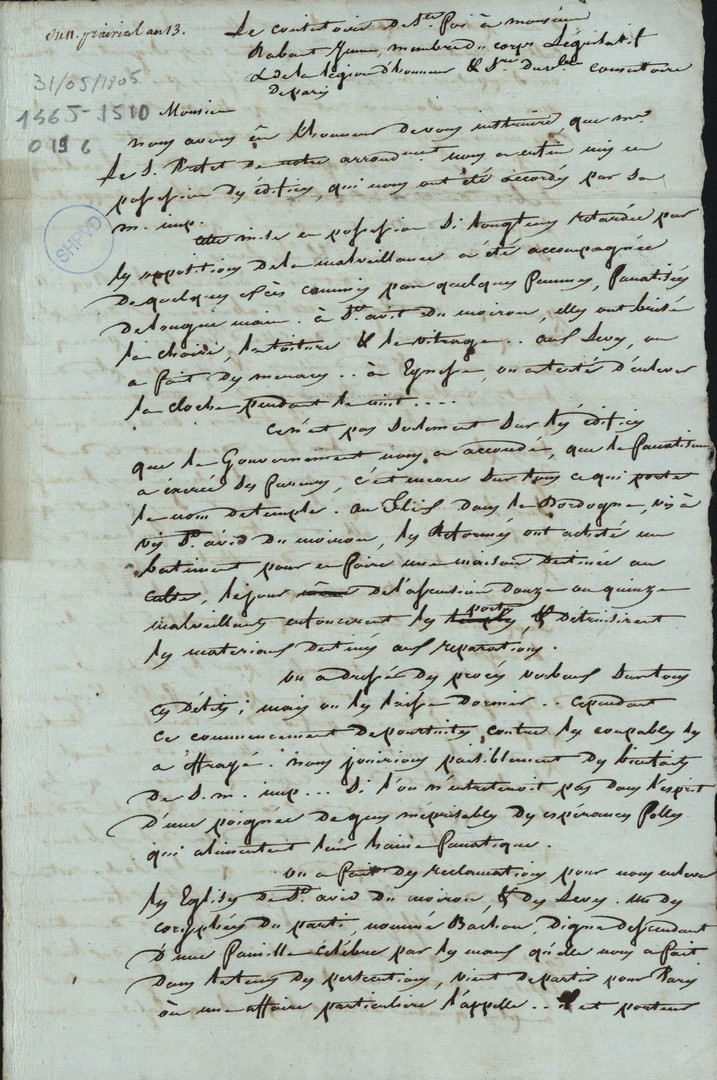 du 11. prairial an 13.
Le consistoire de Ste foi à monsieur
Rabaut jeune, membre du corps Législatif
& de la légion d'honneur & du consistoire
de paris
31/05/1805
1565-1510
019 6
Monsieur
nous avons eu l'honneur de vous instruire, que mr.
le s. Préfet de notre arrondissement nous a enfin mis en
possession des édifices, qui nous ont été accordés par sa
m. imp.
SHPVD
cette mise en possession si longtems retardée par
les oppositions de la malveillance a été accompagnée
de quelques excès commis par quelques femmes, fanatisées
de longue main. à St. avit du moiron, elles ont brisé
la chaire, la toiture & le vitrage.. aux Leves, on
a fait des menaces.. à Eynesse, on a tenté d'enlever
la cloche pendant la nuit....
ce n'est pas seulement sur les édifices
que le Gouvernement nous a accordé, que le fanatisme
a exercé ses fureurs, c'est encore sur tout ce qui porte
le nom de temple. au fleix dans la Dordogne, vis à
vis St. avid du moiron, les réformés ont acheté un
batiment pour en faire une maison destinée au
culte, le jour de l'ascension douze ou quinze
portes
malveillants enfoncerent les & détruisirent
les materiaux destinés aux reparations.
on a dressé des procès verbaux sur tous
ces délits; mais on les laisse dormir.. cependant
ce commencement de poursuites contre les coupables les
a effrayé. nous jouirions paisiblement des bienfaits
de s. m. imp... si l'on n'entretenoit pas dans l'esprit
d'une poignée de gens méprisables des espérances folles
qui alimentent leur haine fanatique.
on a fait des reclamations pour nous enlever
les Eglises de St. avid du moiron, & des Leves. un des
coryphées du parti, nommé digne descendant
d'une famille célébre par les maux qu'elle nous a fait
dans le tems des persecutions, vient de partir pour Paris
où une affaire particuliere l'appelle... il est porteur